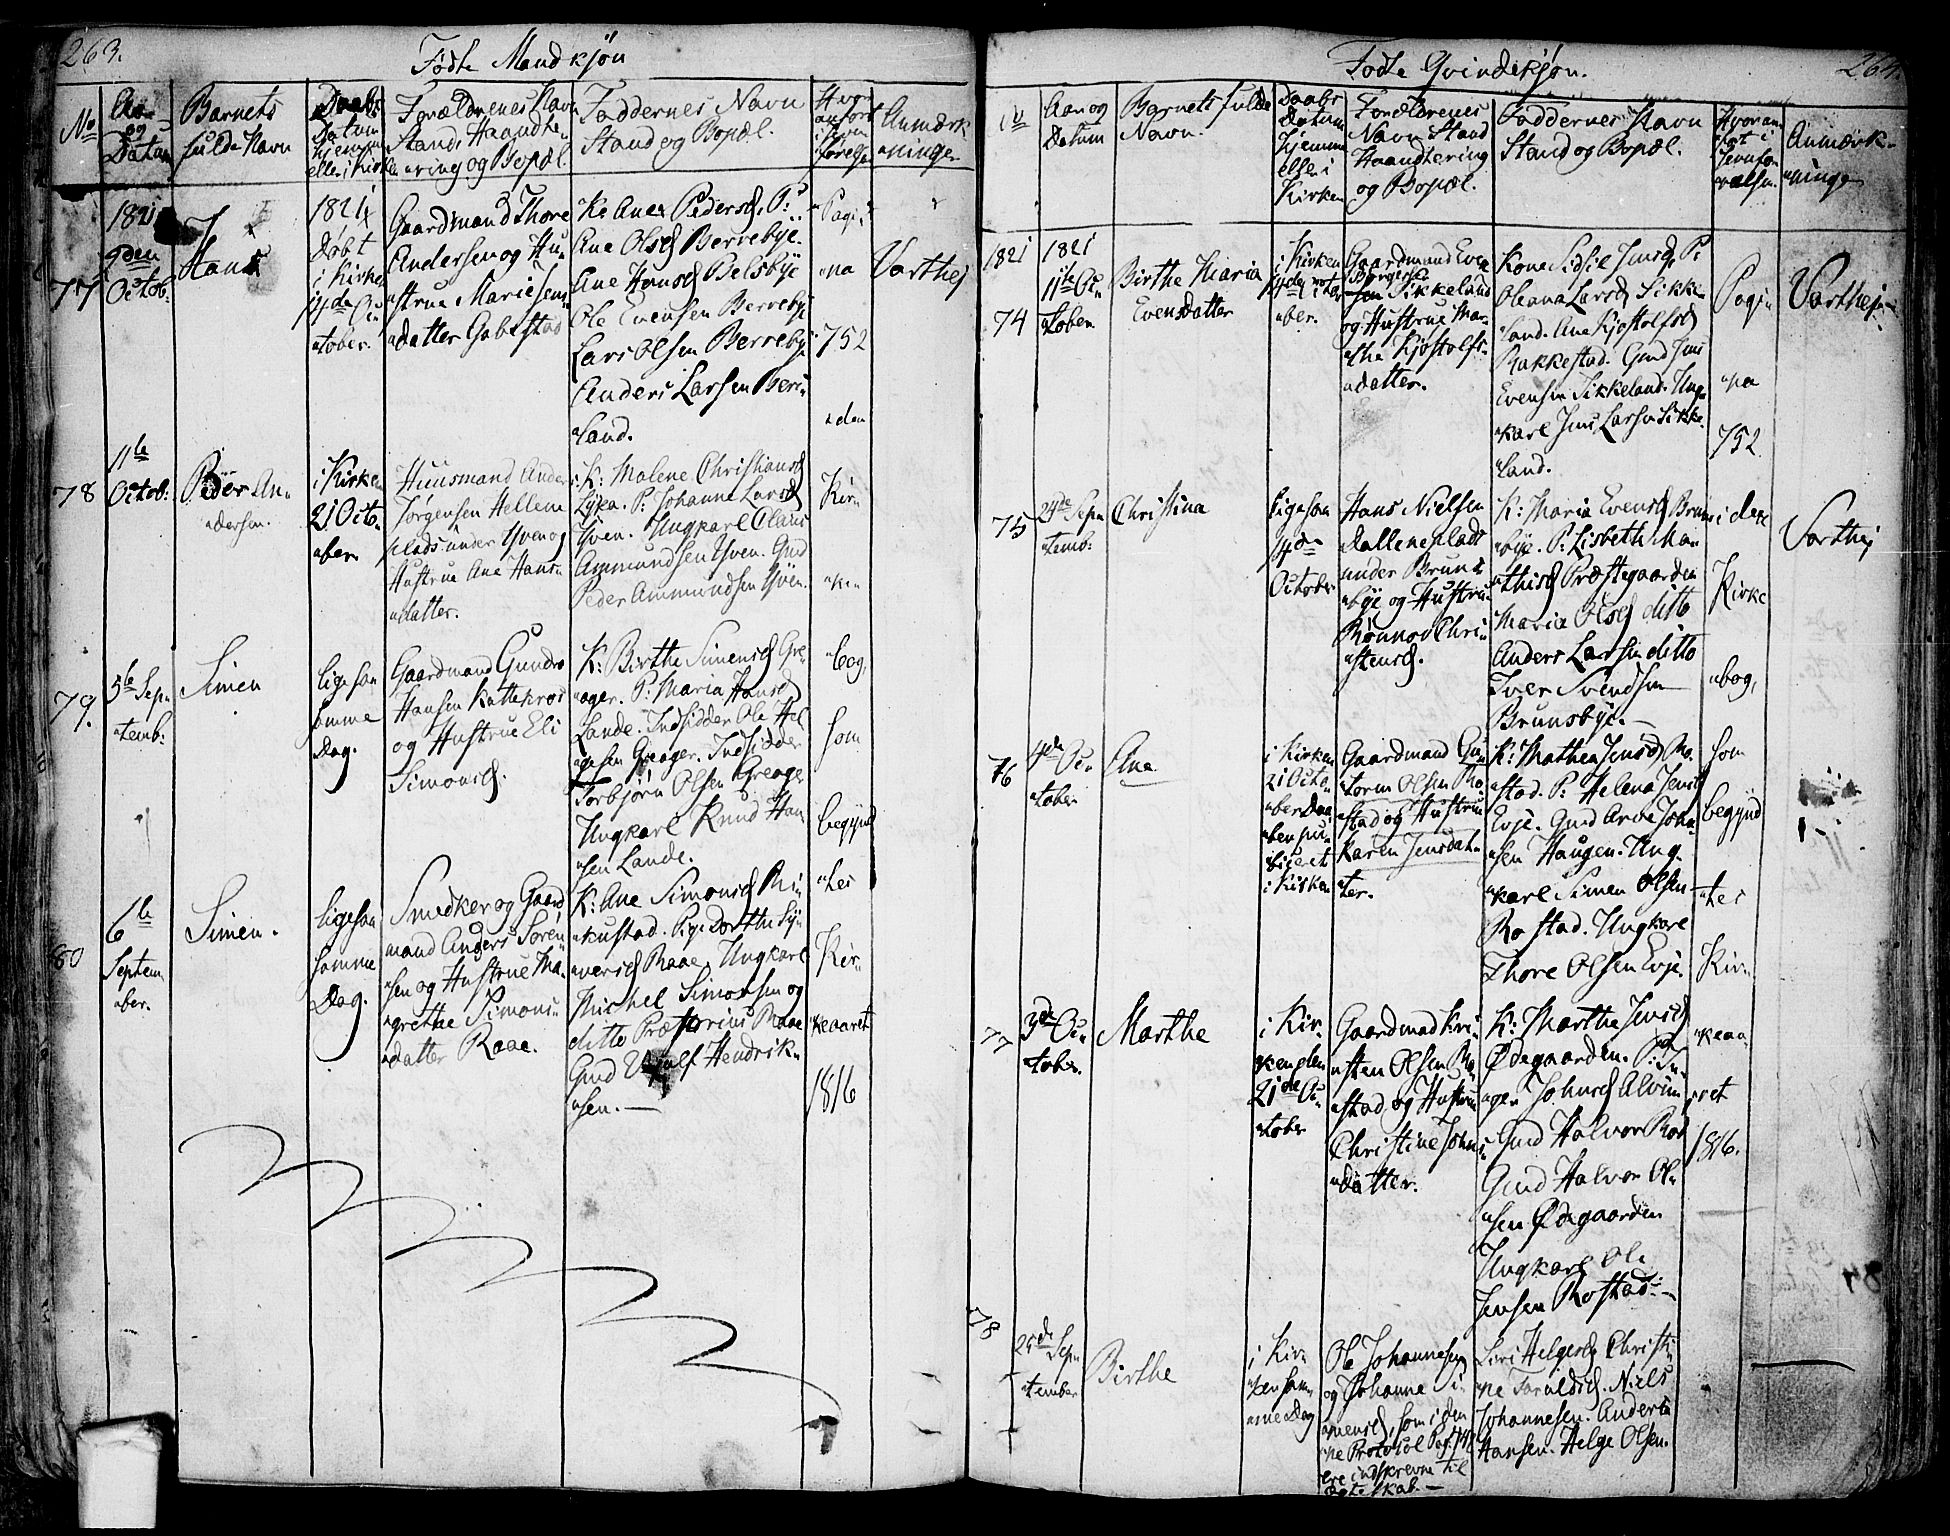 263.
Fødte Mandkjøn
No
Aar og Datum
Barnets fulde Navn
Daabs Datum hjemme eller i Kirken
Forældrenes Navn Stand, Haandte„ „ring og Bopæl.
Faddernes Navn Stand og Bopæl.
Hvor anført i Jevnførelsen
Anmærk „ninger
77
1821 9den Octob:
Hans
1821 Døbt i Kirken 14de Oc„ „tober.
Gaardmand Thore
Andersen og Hu„
„strue Marie Jens„
„datter Gabestad
Ane Olsd Berrebye.
Ane Hansd Belsbye
Ole Evensen Berrebye
Lars Olsen Berrebye
Anders Larsen Beri„
„land.
Pagi„
„na
752
„den
Varthej
78
11te Octob:
Peder An„
„dersen.
i Kirken
21 Octo„
„ber.
Huusmand Ander
Jørgensen Hellem
plads under Hven og
Hustrue Ane Hans„
„datter.
K: Malene Christiansd
Lyka. P: Johanne Larsd
Hven. Ungkarl Claus
Ammundsen Hven. Gmd
Peder Ammundsen Hven.
Kir„
„ke„
79.
5te Sep„
„temb:
Simen
ligesaa
samme
Dag.
Gaardmand Gundro
Hansen Kattekros
og Hustrue Eli
Simonsd.
K: Birthe Simensd Gre„
„ager. P: Maria Hansd
Lande. Indsidder Ole Hel
„gesen Greager. Indsidder
Torbjørn Olsen Greager
Ungkarl Knud Han
„sen Lande.
„bog,
som
begynd
80
6te
Septem
„ber.
Simen.
ligesaa
samme
Dag.
Snedker og Gaard
mand Anders Sören„
„sen og Hustrue Ma„
„grethe Simons„
„datter Raae.
K: Ane Simonsd Mi„
„kustad. Pige Dorthe Sy„
„versd Raae. Ungkarl
Michel Simonsen og
ditto Prætorius Raae
Gmd Hendrik„
„sen.—
„tes
Kir„
„keaaret
1816
264.
Fødte Qvindekjøn.
No
Aar og Datum
Barnets fulde Navn.
Daabs Datum hjemme eller i Kirken
Forældrenes Navn Stand Haandtering og Bopæl.
Faddernes Navn Stand og Bopæl.
Hvor an„ ført i Jevnfø„ relsen.
Anmærk„ „ninge
1821
74
1821
11te Oc„
„tober.
Birthe Maria
Evensdatter
i Kirken
14de Octo„
„ber.
Gaardmand Even
Børgersen
Sikkeland
og Hustrue Mar„
„the Kjøstolfs„
„datter.
Kone Sidsil Jensd, P:
Oleana Larsd Sikke„
„land. Ane Kjøstolfsd
Rakkestad. Gmd Jens
Evensen Sikkeland. Ung„
„karl Jens Larsen Sikke„
„land.
Pagi„
„na
752
Varthej
75
24de Sep„
„temb:
Christina
ligesaa
14de
October
Hans Nielsen
Dalleneplads
under Bruns
„bye og Hustru„
Rønnov Chri„
„stensd.
K: Maria Evensd Bruns
„bye. P: Lisbeth Ma„
„thisd Præstegaarden
Maria Olsd ditto
Anders Larsen ditto
Iver Svendsen
Brunsbye.—
i den
Kirke
„bog,
Varthej
76
4de Oc„
„tober
Ane
i Kirken
21 Octo„
„ber Daa„
„ben pu„
„bliceret
i Kirken
Gaardmand Gu„
„torm Olsen Ro„
„stad og Hustrue
Karen Jensdat„
„ter.
K: Mathea Jensd Ro„
„stad. P: Helena Jensd
Evje. Gmd Arve Joha„
„sen Haugen. Ung„
„karl Simen Olsen
Rostad. Ungkarl
Thore Olsen Evje.
som
begynd
„tes
Kir„
77
3de Oc„
„tober.
Marthe
i Kir„
„ken den
21de Oc„
„tober
Gaardmad Kri„
„sten Olsen Ro„
„stad og Hustrue
Christine Johns„
„datter.
K: Marthe Jensd
Ødegaarden. P: In„
„ger Johnsd Alvim
Gmd Halvor Rod
Gmd Halvor Ol„
„sen Ødegaarden
Ungkarl Ole
Jensen Rostad.—
„keaa„
„ret
1816.
78
25de Sep„
„tember
Birthe
i Kir„
„ken sam„
„me Dag
Ole Johannesen
og Johanne Si„
„mensd, som i den
„ne Protokol Pag:
ere indskrevne til
Ægteskab.—
Siri Helgesd Christi„
„ne Taraldsd. Niels
Johannesen. Anders
Hansen. Helge Olsen.